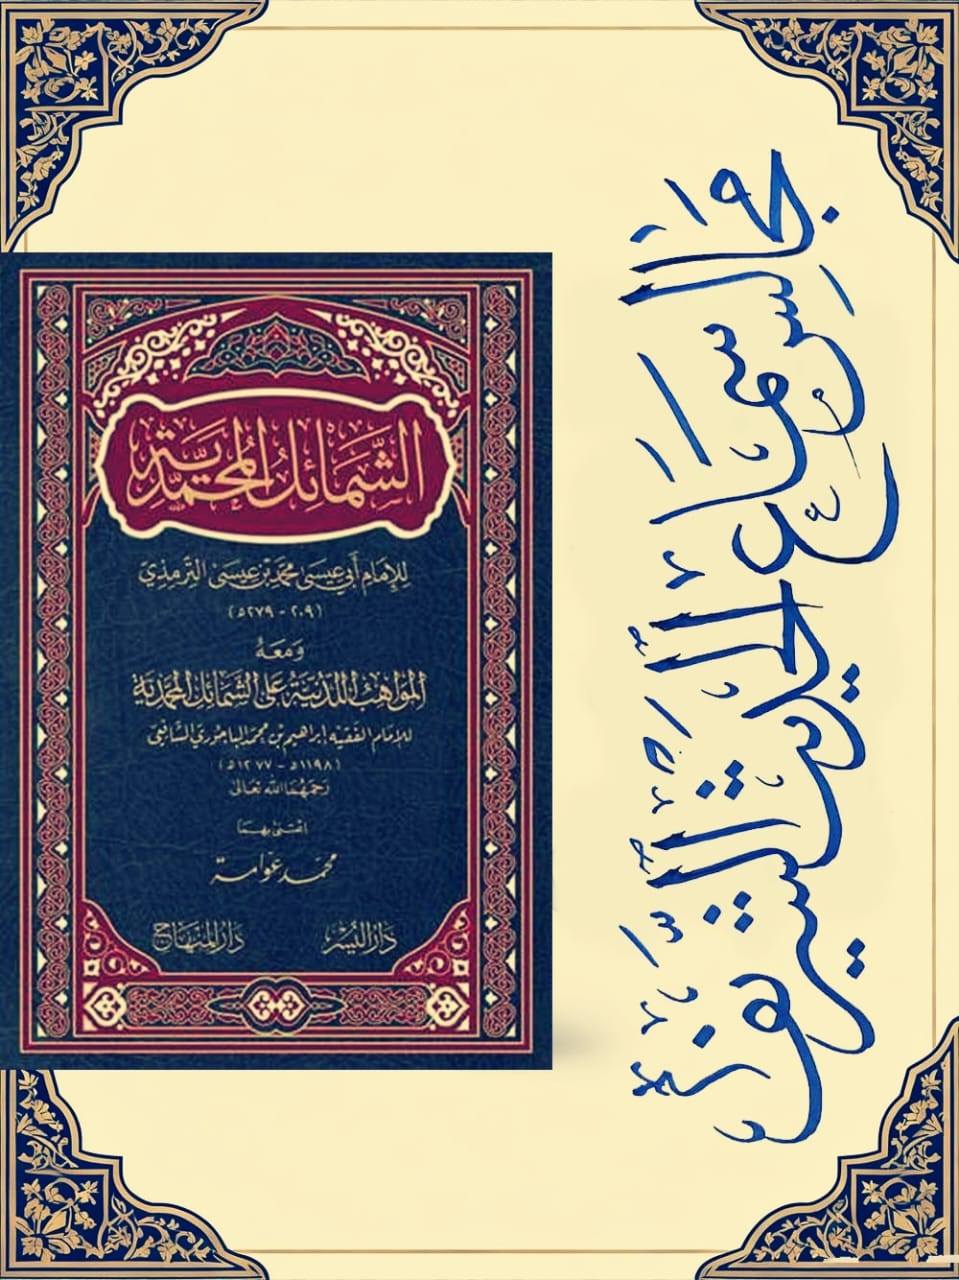 مجالس سماع الحديث الشريف
الشَّمَائِلُ المُحَمَّدِيَّة
لِلإِمَام أَبي عِيسَى مُحَمَّد بْن عِيسَى التِّرمِذِي
(٢٠٩ - ٢٧٩هـ)
وَمَعَهُ
المَوَاهِبُ اللَّدُنِيَّة عَلى الشَّمَائِل المُحَمَّدِيَّة
للإمام الفقيه إبراهيم بن محمد الباجوري الشافعي
(١١٩٨هـ - ١٢٧٧هـ)
رَحِمَهُمَا اللهُ تَعَالى
اعْتَنَى بِهِمَا
محمد عوّامة
دَارُ اليُسْر
دَارُ المِنْهَاج